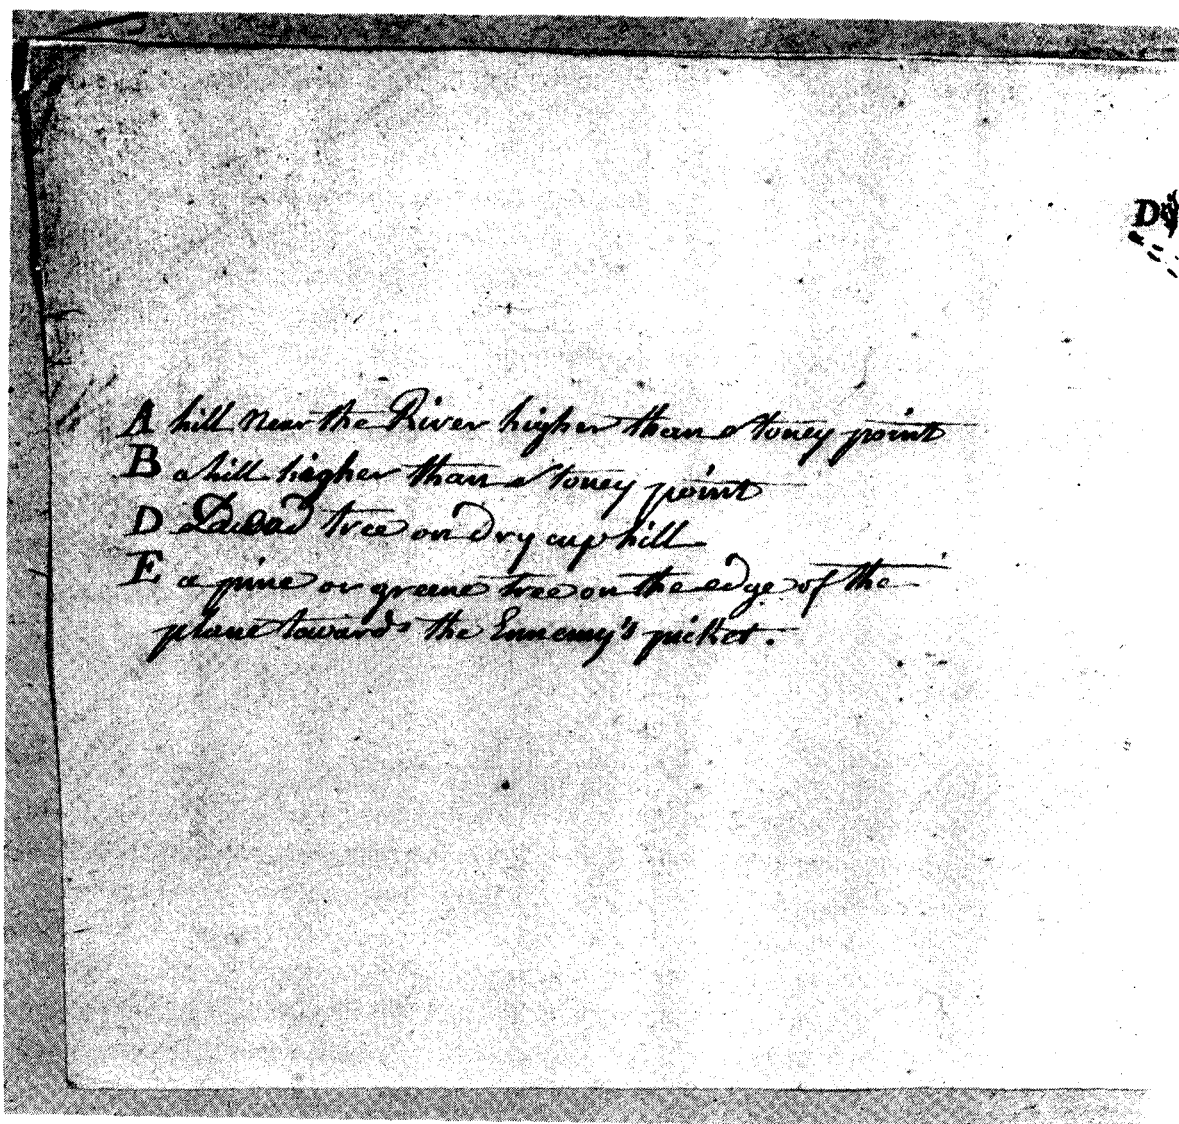 D
A hill near the River higher than stoney point
B a hill higher than stoney point
D a Dead tree on dry cup hill
E a pine or greene tree on the edge of the
plane towards the Ennemy's picket.